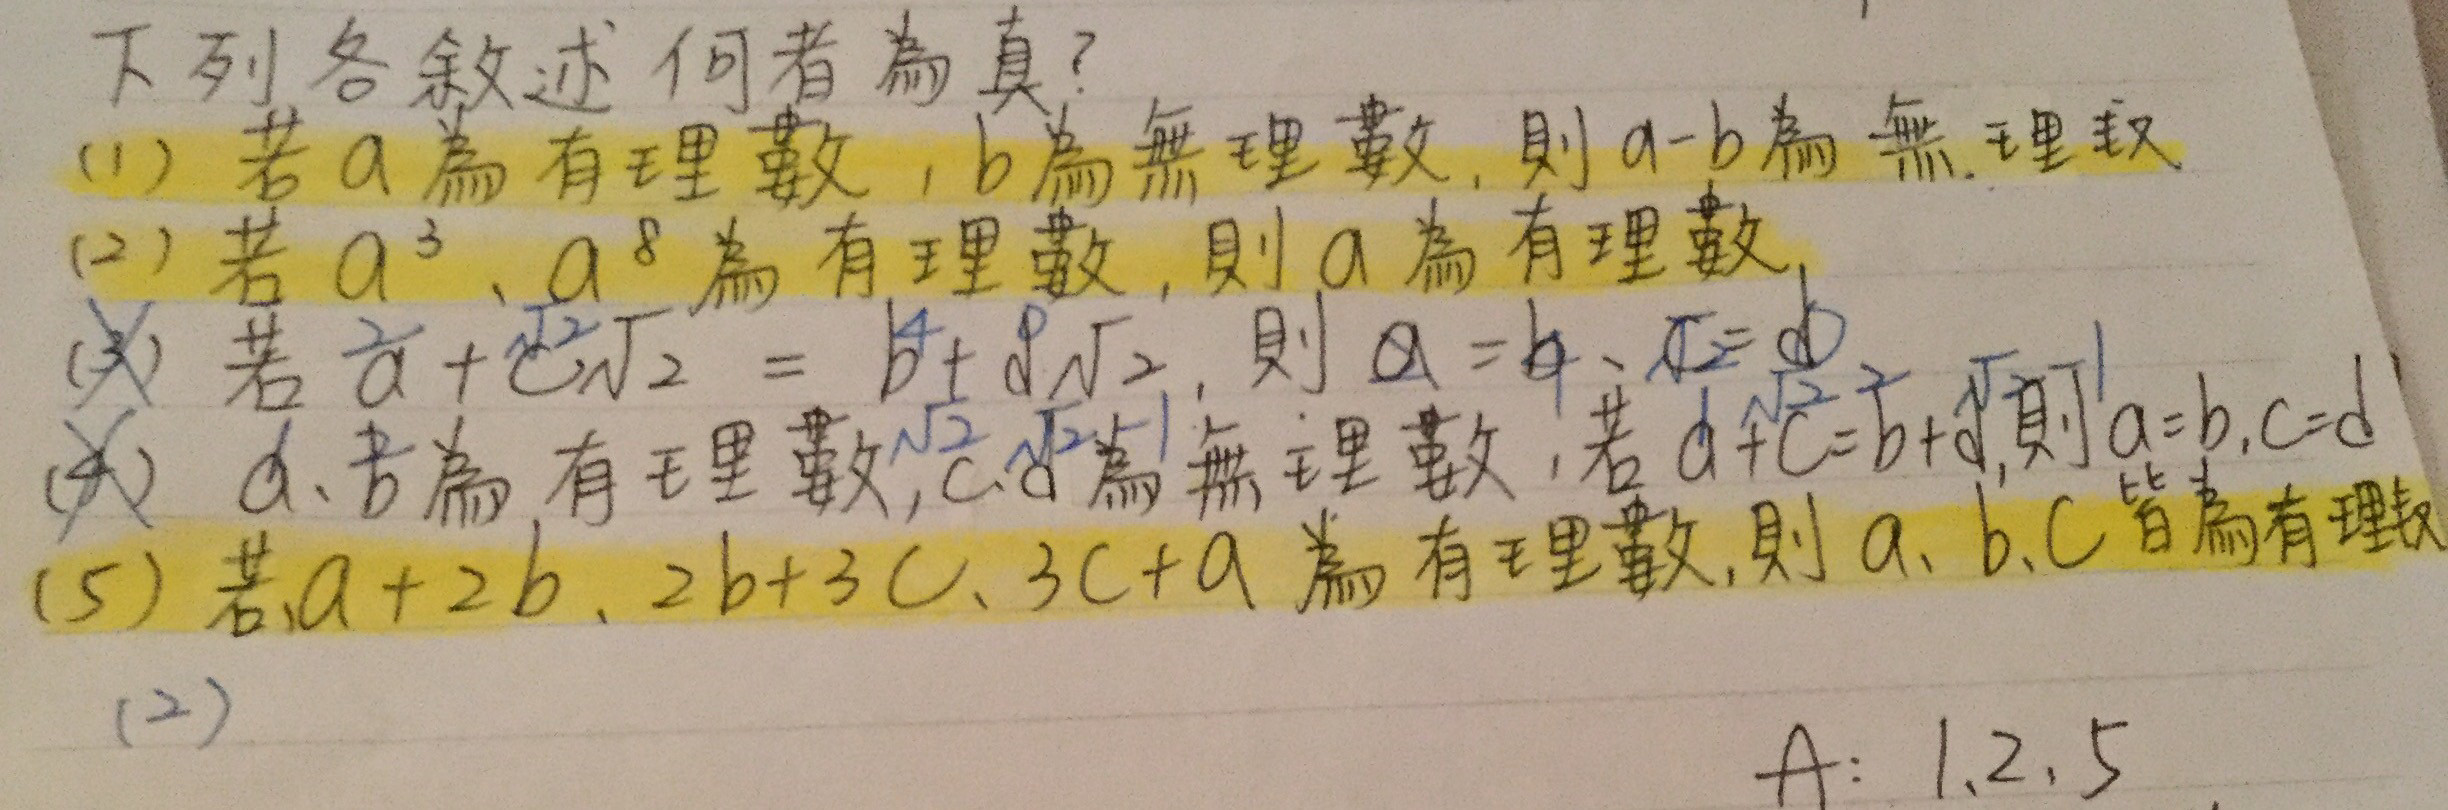 下列各敘述何者為真?
(1) 若a為有理數,b為無理數,則a-b為無理数
(2) 若a³、a⁸為有理數,則a為有理數.
(3) 若a+c√2 = b+d√2,則a=b、c=d
(4) a、b為有理數,c.d為無理數,若a+c=b+d,則a=b,c=d
(5) 若a+2b、2b+3c、3c+a為有理數,則a、b、c皆為有理数
(2)
A: 1、2、5